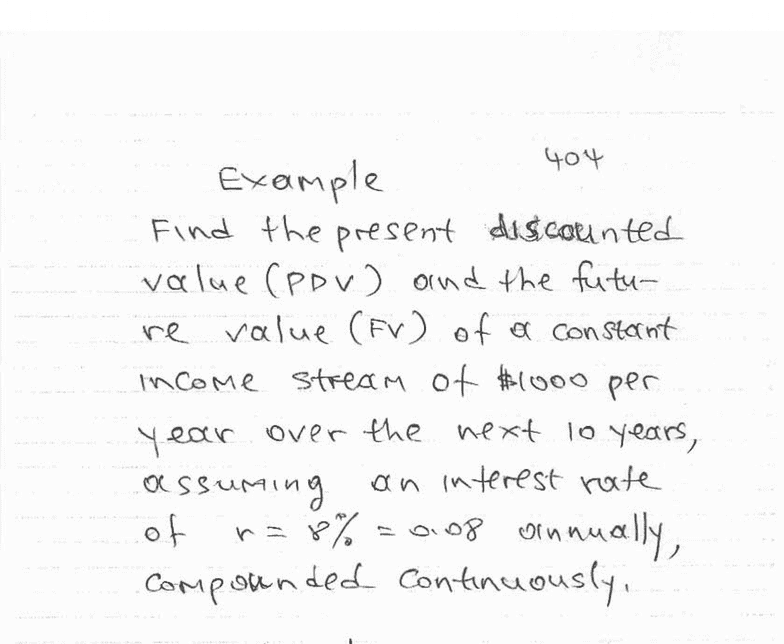 404
Example
Find the present discounted
value (PDV) and the futu-
re value (FV) of a constant
income stream of $1000 per
year over the next 10 years,
assuming an interest rate
of r = 8% = 0.08 annually,
compounded continuously.